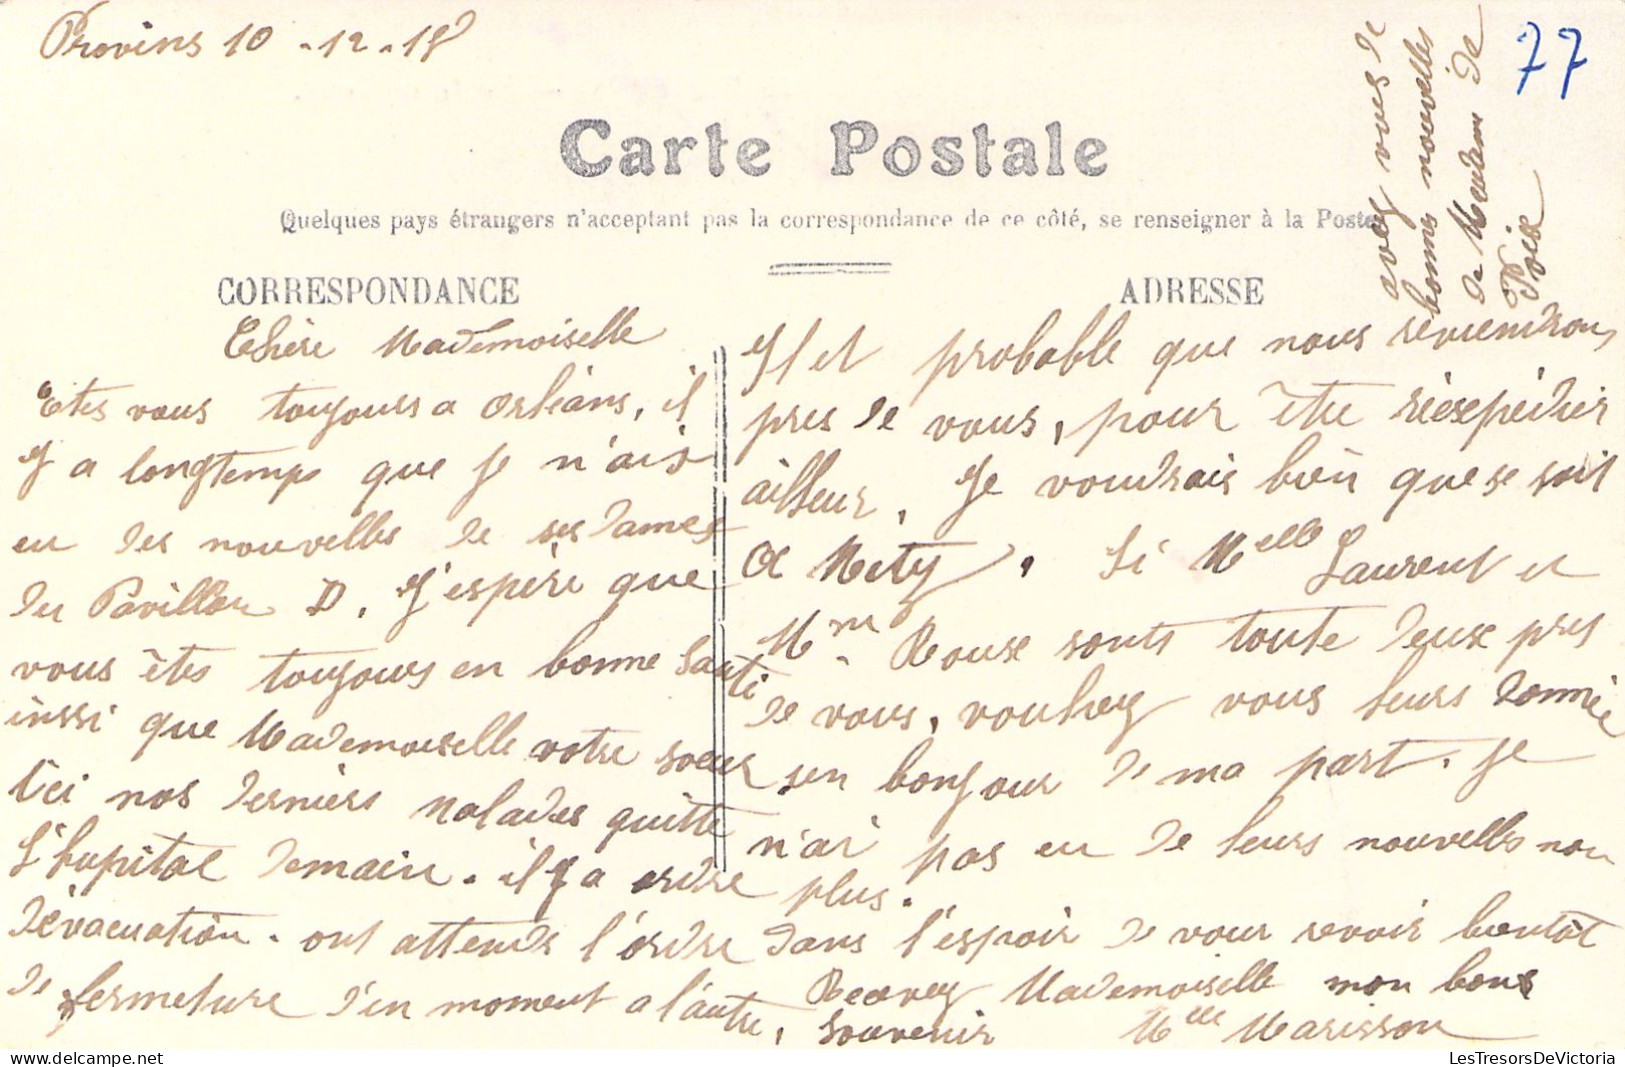 Provins 10-12-18
77
Carte Postale
Quelques pays étrangers n'acceptant pas la correspondance de ce côté, se renseigner à la Poste
CORRESPONDANCE
ADRESSE
avez vous de
bonnes nouvelles
de Madame de
Poix
Chère Mademoiselle
Etes vous toujours a Orléans, il
y a longtemps que je n'ais
eu des nouvelles de ses dames
du Pavillon D. J'espère que
vous êtes toujours en bonne santé
inssi que Mademoiselle votre soeur
Ici nos derniers malades quitte
l'hopital demain. il y a ordre
d'évacuation. ont attends l'ordre
de fermeture d'en moment a l'autre,
Il et probable que nous reviendrons
pres de vous, pour être réexpédier
ailleur, Je voudrais bien que se soit
a Mety. Si Melle Laurent et
Mme Rouse sonts toute deux pres
de vous, voulvez vous leurs donnée
un bonjour de ma part. Je
n'ai pas eu de leurs nouvelles non
plus.
dans l'espoir de vour revoir bientôt
Recevez Mademoiselle mon bons
souvenir Melle Marisson
LesTresorsDeVictoria